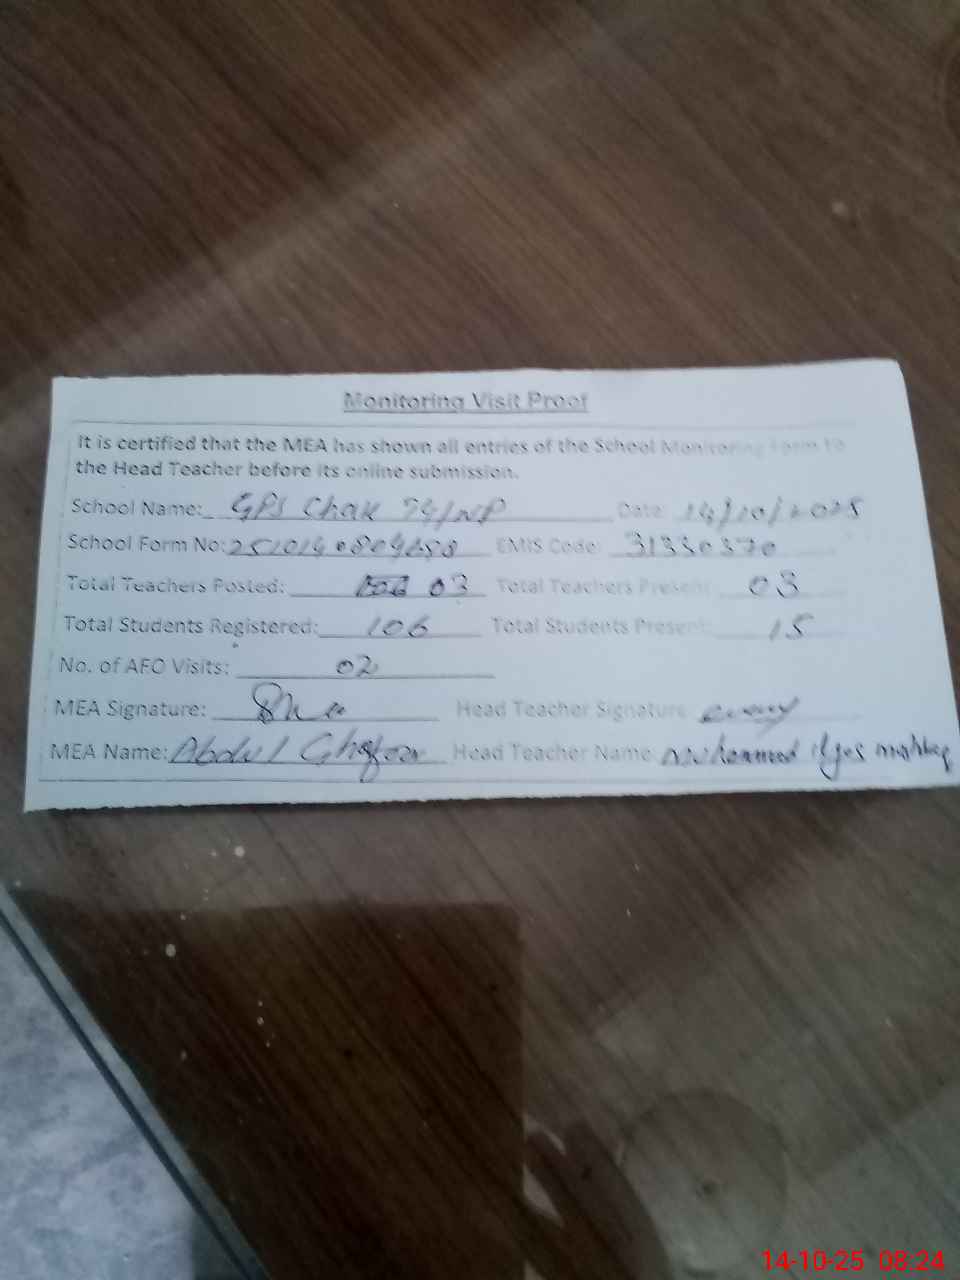 Monitoring Visit Proof
It is certified that the MEA has shown all entries of the School Monitoring Form to
the Head Teacher before its online submission.
School Name: GPS Chak 74/NP Date: 14/10/2025
School Form No: EMIS Code: 31330370
Total Teachers Posted: 03 Total Teachers Present: 03
Total Students Registered: 106 Total Students Present: 15
No. of AEO Visits: 02
MEA Signature: Head Teacher Signature:
MEA Name: Abdul Ghafoor Head Teacher Name: Muhammad ilyas
14-10-25 08:24